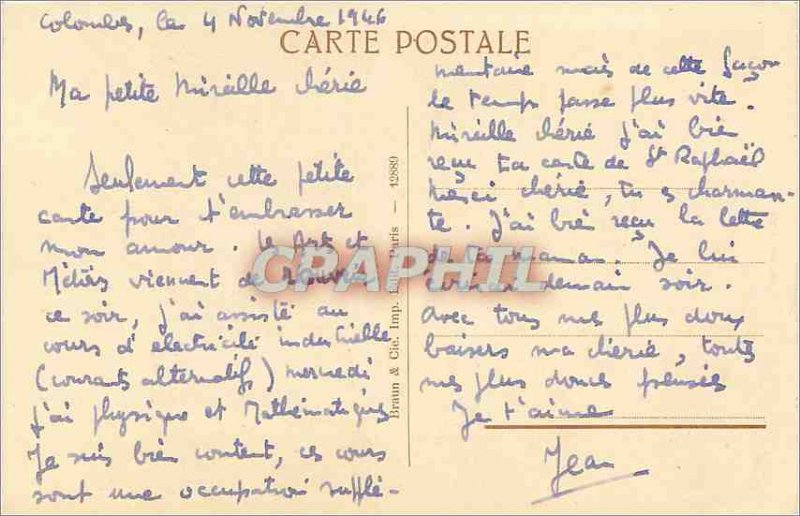 Colombes, le 4 Novembre 1946
CARTE POSTALE
Ma petite Mireille chérie
Seulement cette petite
carte pour t'embrasser
mon amour. Les Arts et
Métiers viennent de
ce soir, j'ai assisté au
cours d'électricité industrielle
(courants alternatifs) mercredi
j'ai physique et Mathématiques
Je suis bien content, ces cours
sont une occupation supplé-
Braun & Cie, Imp. Paris — 12889
mentaire mais de cette façon
le temps passe plus vite.
Mireille chérie j'ai bien
reçu ta carte de St Raphaël
Merci chérie, tu es charman-
te. J'ai bien reçu la lettre
de ta maman. Je lui
écrirai demain soir.
Avec tous mes plus doux
baisers ma chérie, toutes
mes plus douces pensées
Je t'aime
Jean
CPAPHIL